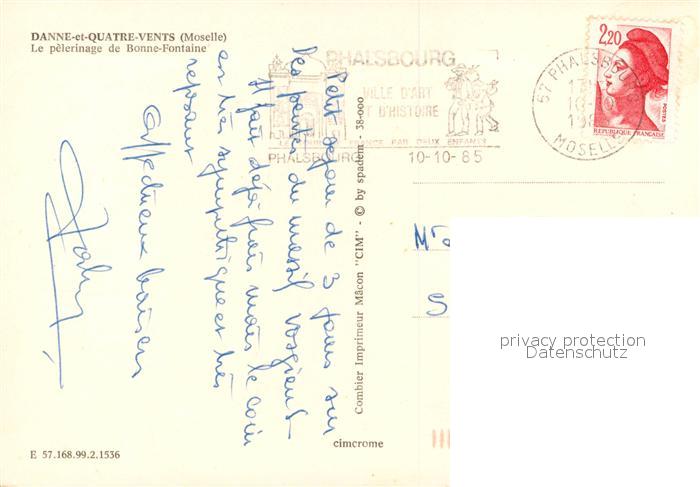 DANNE-et-QUATRE-VENTS (Moselle)
Le pèlerinage de Bonne-Fontaine
PHALSBOURG
VILLE D'ART
ET D'HISTOIRE
FRANCE PAR DEUX ENFANTS
PHALSBOURG
10-10-85
57 PHALSBOURG
MOSELLE
2,20
POSTES
REPUBLIQUE FRANÇAISE
Petit séjour de 3 jours sur
les pentes du massif vosgient
Il fait déjà frais mais le coin
est très sympathique et très
reposant
Affectueux baisers
Combier Imprimeur Mâcon "CIM" - © by spadem - 38-000
cimcrome
E 57.168.99.2.1536
privacy protection
Datenschutz